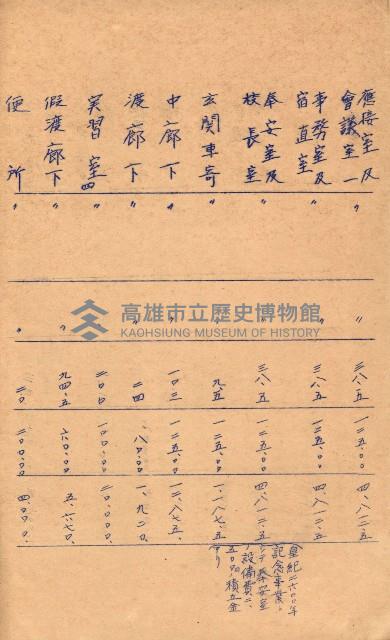 應接室及
會議室一 〃 〃 三八.五 一二五.〇〇 四、八一二.五
事務室及
宿直室 〃 〃 三八.五 一二五.〇〇 四、八一二.五
奉安室及
校長室 〃 〃 三八.五 一二五.〇〇 四、八一二.五
皇紀二六〇〇年
記念事業
トシテ奉安室
設備費ニ
五〇〇円積立金
アリ
玄関車寄 〃 〃 九.五 一二五.〇〇 一、一八七.五
中廊下 〃 〃 一〇三 一二五.〇〇 一二、八七五.
渡廊下 〃 〃 二四 八〇.〇〇 一、九二〇.
実習室四 〃 〃 二〇〇 一〇〇.〇〇
假渡廊下 〃 〃 九四.五 六〇.〇〇 五、六七〇.
便所 〃 〃 二〇 二〇〇.〇〇 四、〇〇〇.
高雄市立歷史博物館
KAOHSIUNG MUSEUM OF HISTORY